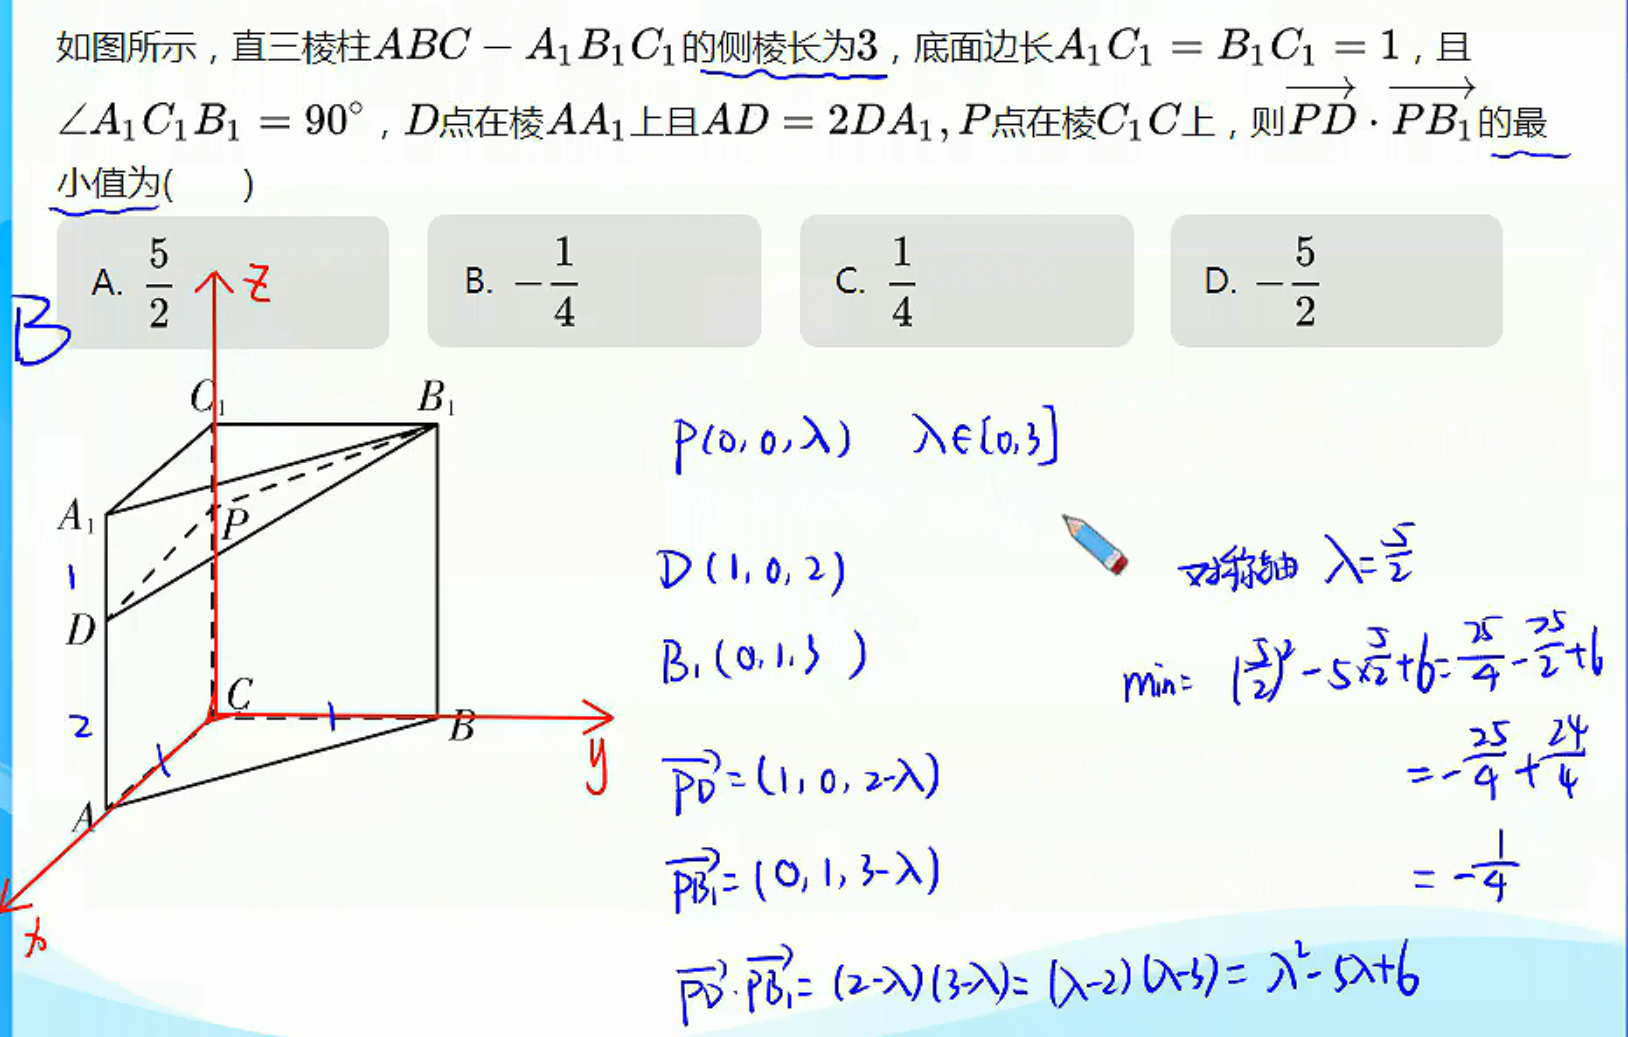 如图所示，直三棱柱ABC − A₁B₁C₁的侧棱长为3，底面边长A₁C₁ = B₁C₁ = 1，且
∠A₁C₁B₁ = 90°，D点在棱AA₁上且AD = 2DA₁, P点在棱C₁C上，则\overrightarrow{PD} · \overrightarrow{PB₁}的最
小值为(  )
A. 5/2 B. −1/4 C. 1/4 D. −5/2
B
z
C₁ B₁
A₁
P
1
D
C
2
1
1
B
y
A
x
P(0,0,λ) λ∈[0,3]
D(1,0,2)
B₁(0,1,3 )
\overrightarrow{PD}=(1,0,2-λ)
\overrightarrow{PB₁}=(0,1,3-λ)
\overrightarrow{PD}·\overrightarrow{PB₁}=(2-λ)(3-λ)=(λ-2)(λ-3)=λ²-5λ+6
对称轴 λ=5/2
min= (5/2)²-5×5/2+6=25/4-25/2+6
=-25/4+24/4
=-1/4